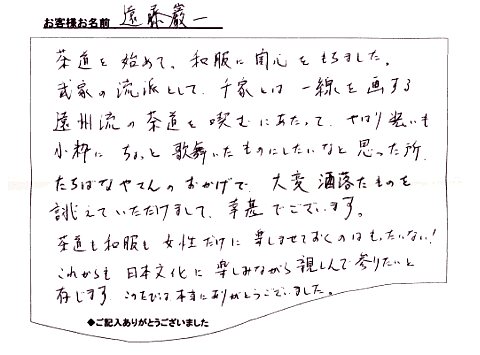 お客様お名前 遠藤巌一
茶道を始めて、和服に関心をもちました。
武家の流派として、千家とは一線を画する
遠州流の茶道を喫むにあたって、やはり装いも
小粋に ちょっと歌舞いたものにしたいなと思った所、
たちばなやさんのおかげで、大変洒落たものを
誂えていただけまして、幸甚でございます。
茶道も和服も女性だけに楽しませておくのはもったいない!
これからも日本文化に楽しみながら親しんで参りたいと
存じます。このたびは本当にありがとうございました。
◆ご記入ありがとうございました